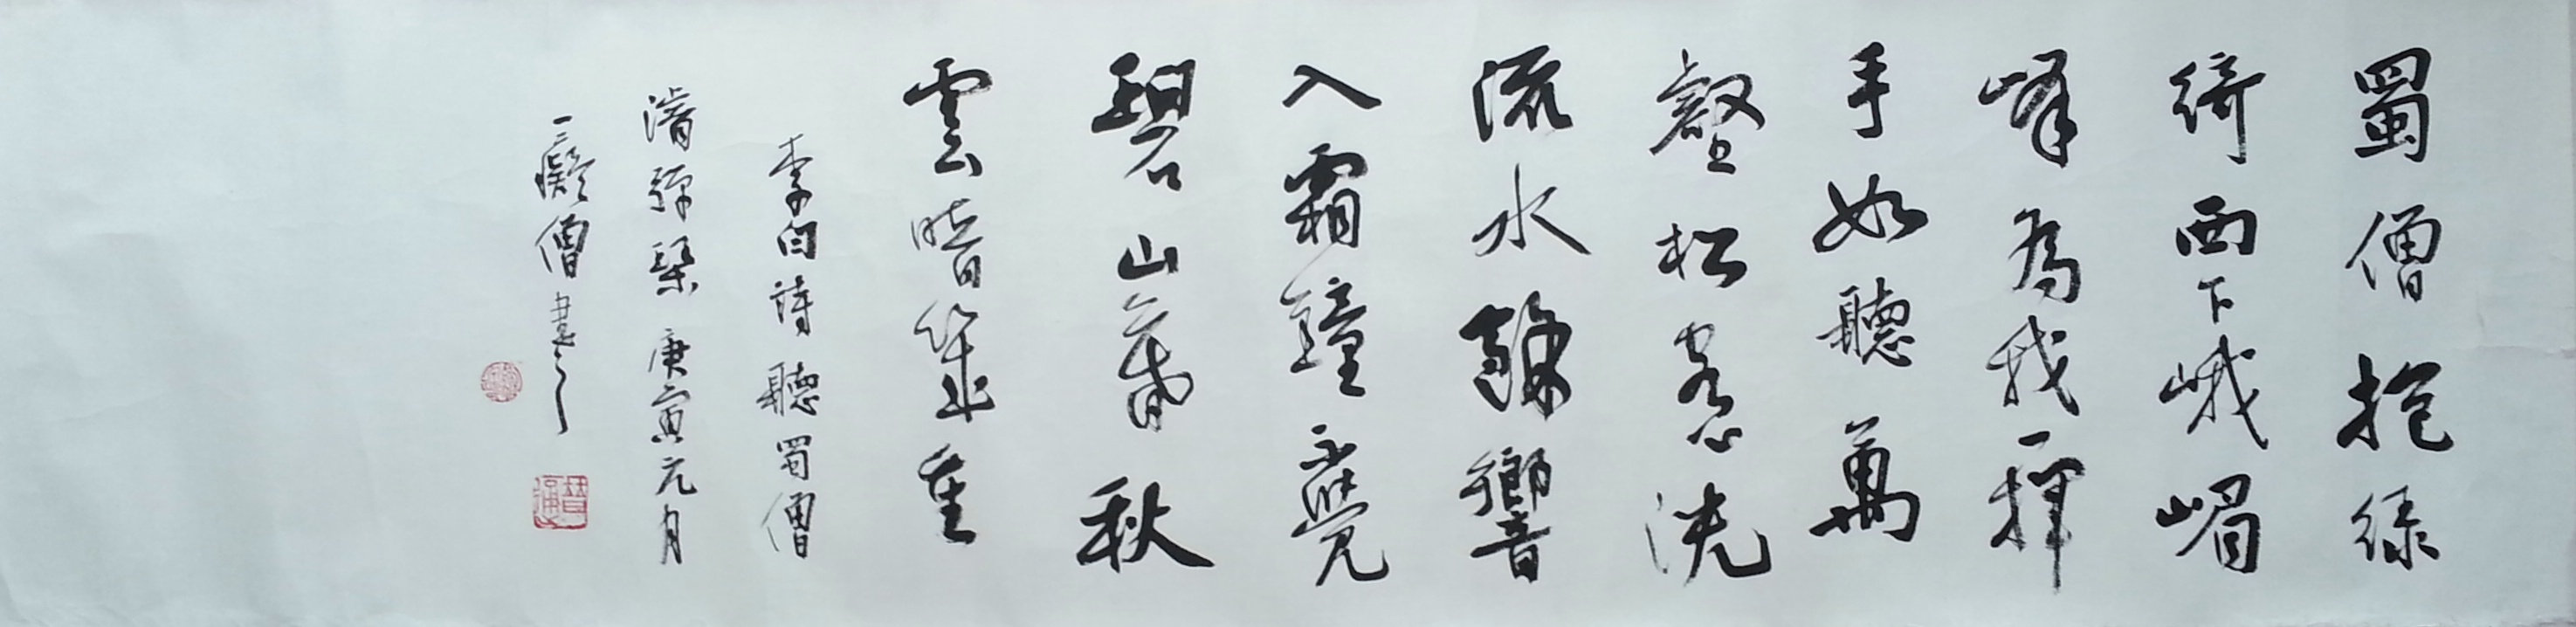 蜀僧抱綠
綺西下峨嵋
峰為我一揮
手如聽萬
壑松客心洗
流水餘響
入霜鐘不覺
碧山暮秋
雲暗幾重
李白詩聽蜀僧
濬彈琴 庚寅元月
三癡僧書之